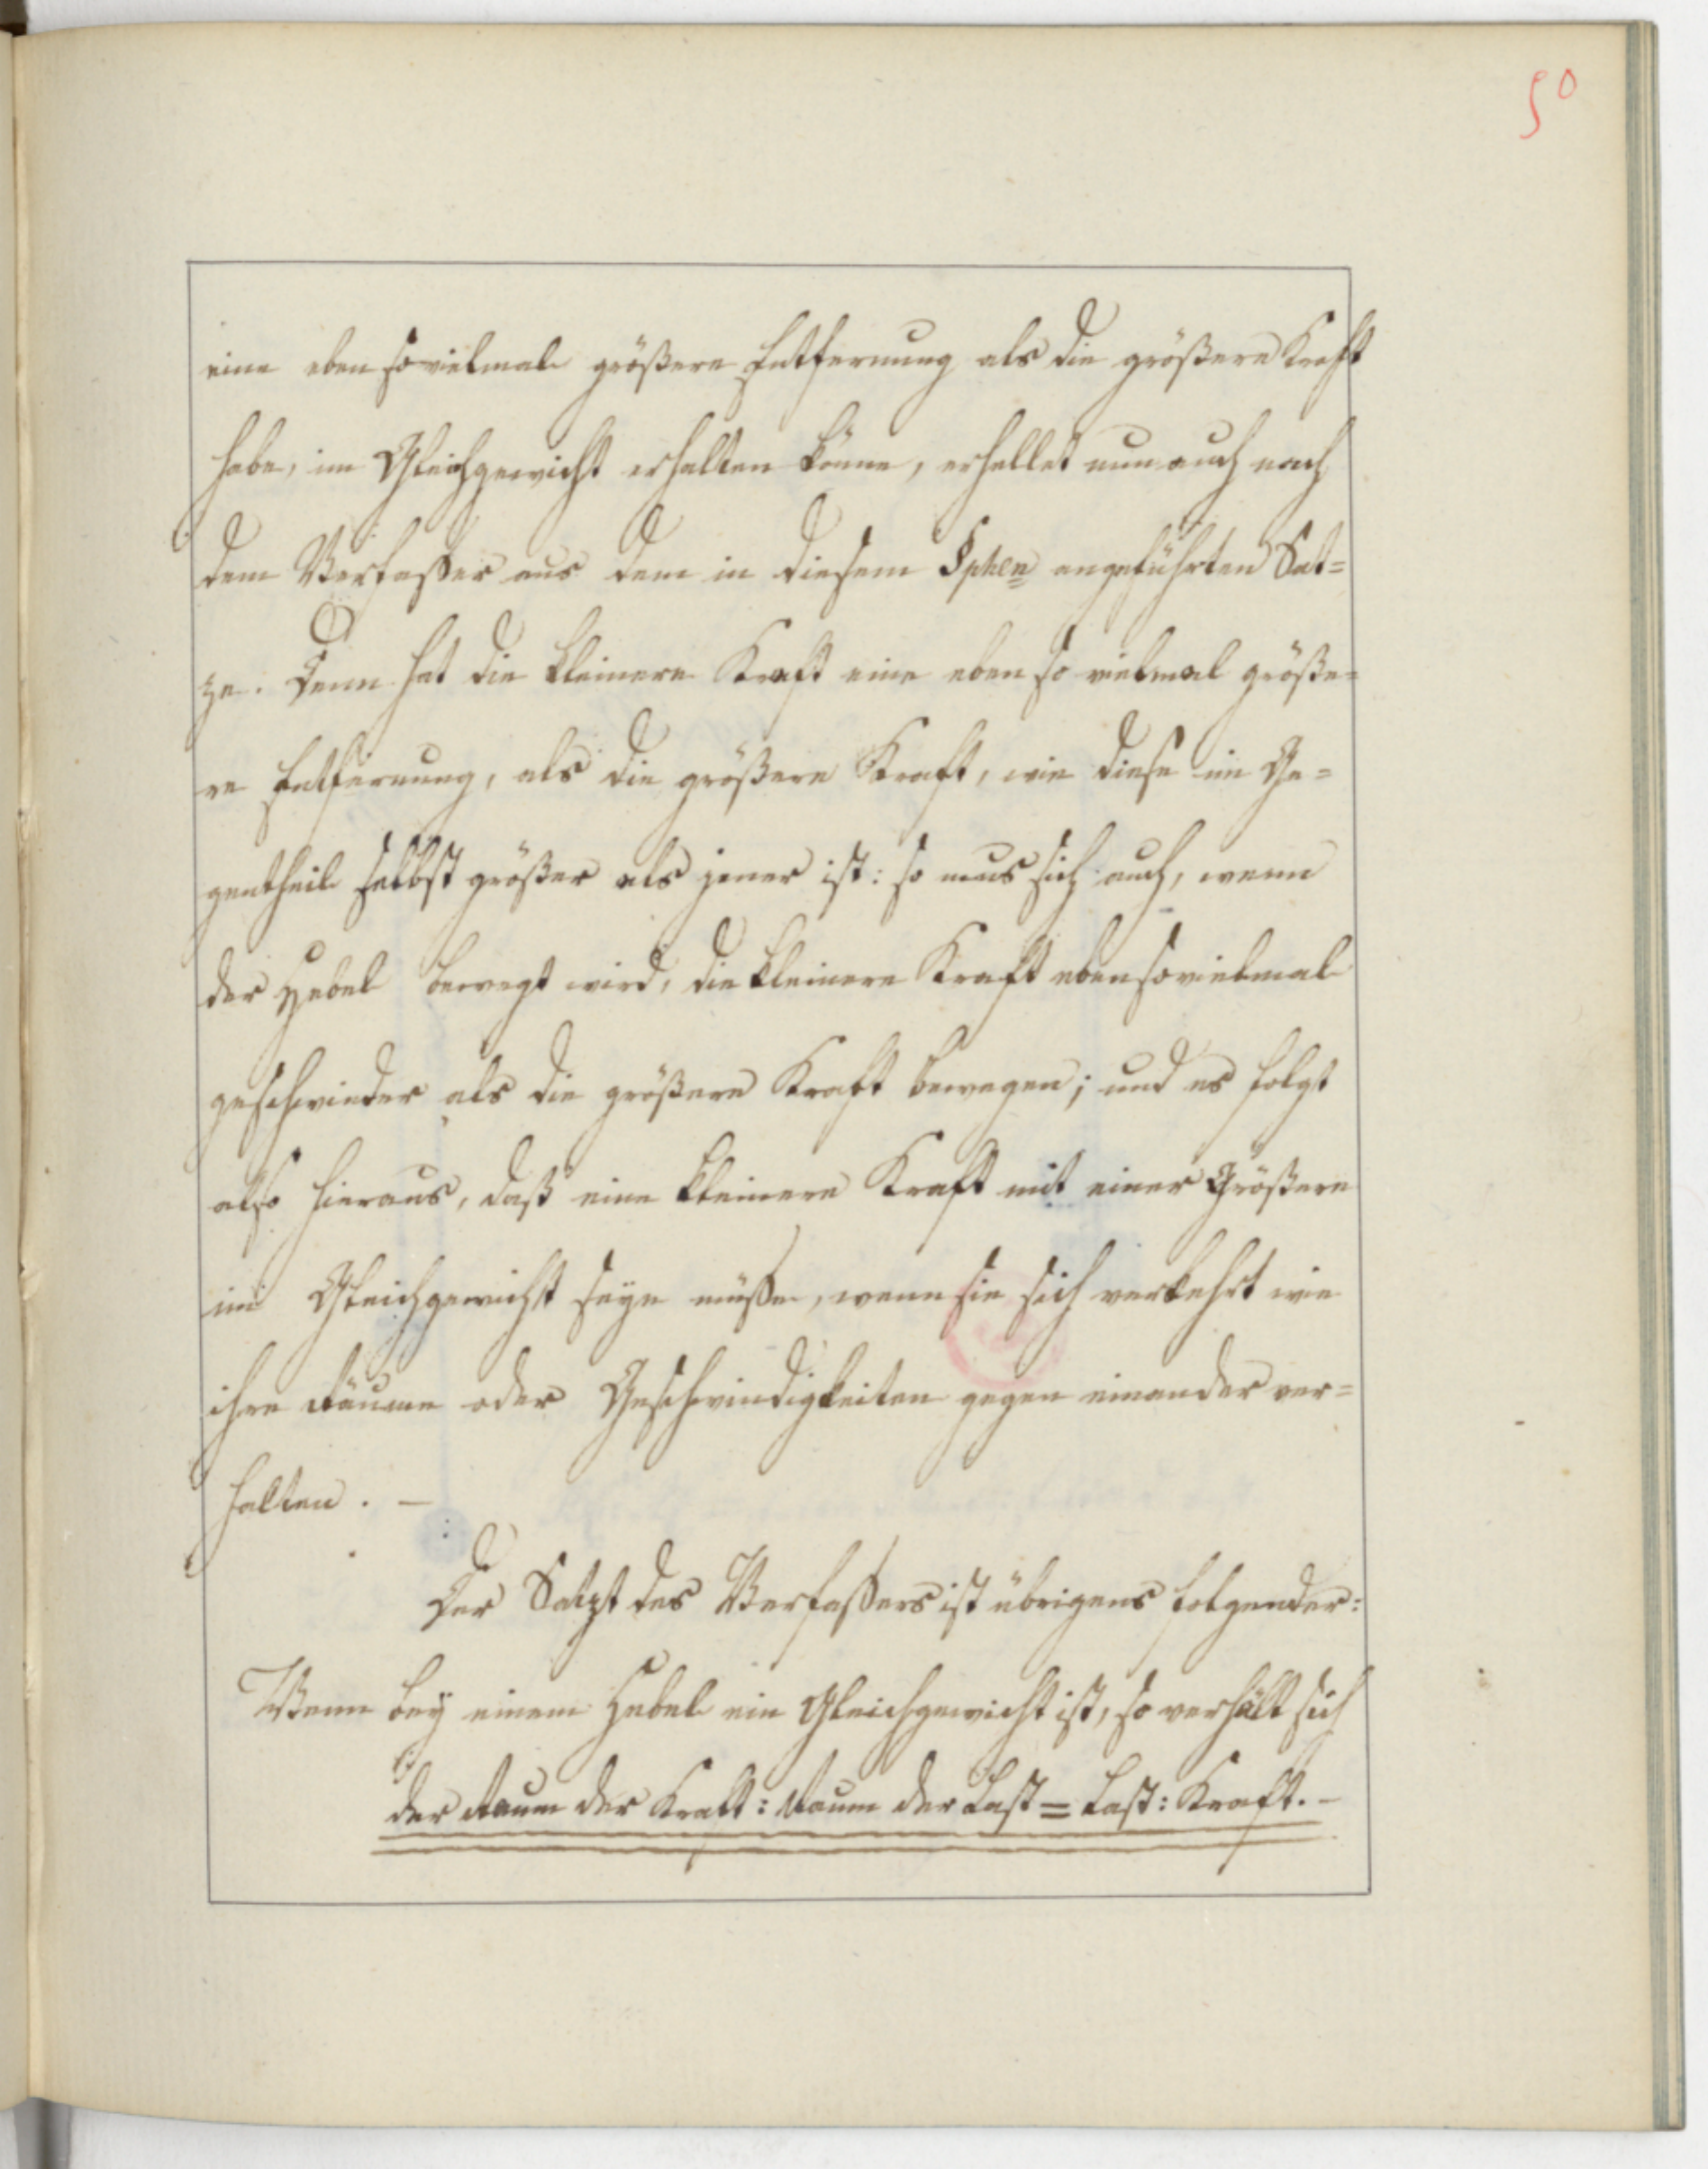 50
eine eben sovielmal größere Entfernung als die größere Kraft
habe, im Gleichgewicht erhalten könne, erhellet nun auch nach
dem Verfaßer aus dem in diesem §phen angeführten Sat=
ze. Denn hat die kleinere Kraft eine eben so vielmal größe=
re Entfernung, als die größere Kraft, wie diese im Ge=
gentheil selbst größer als jener ist: so mus sich auch, wenn
der Hebel bewegt wird, die kleinere Kraft eben sovielmal
geschwinder als die größere Kraft bewegen; und es folgt
also hieraus, daß eine kleinere Kraft mit einer Größern
im Gleichgewicht seyn müße, wenn sie sich verkehrt wie
ihre Räume oder Geschwindigkeiten gegen einander ver=
halten. —
Der Satzt des Verfaßers ist übrigens folgender:
Wenn bey einem Hebel ein Gleichgewicht ist, so verhält sich
der Raum der Kraft : Raum der Last = Last : Kraft. —